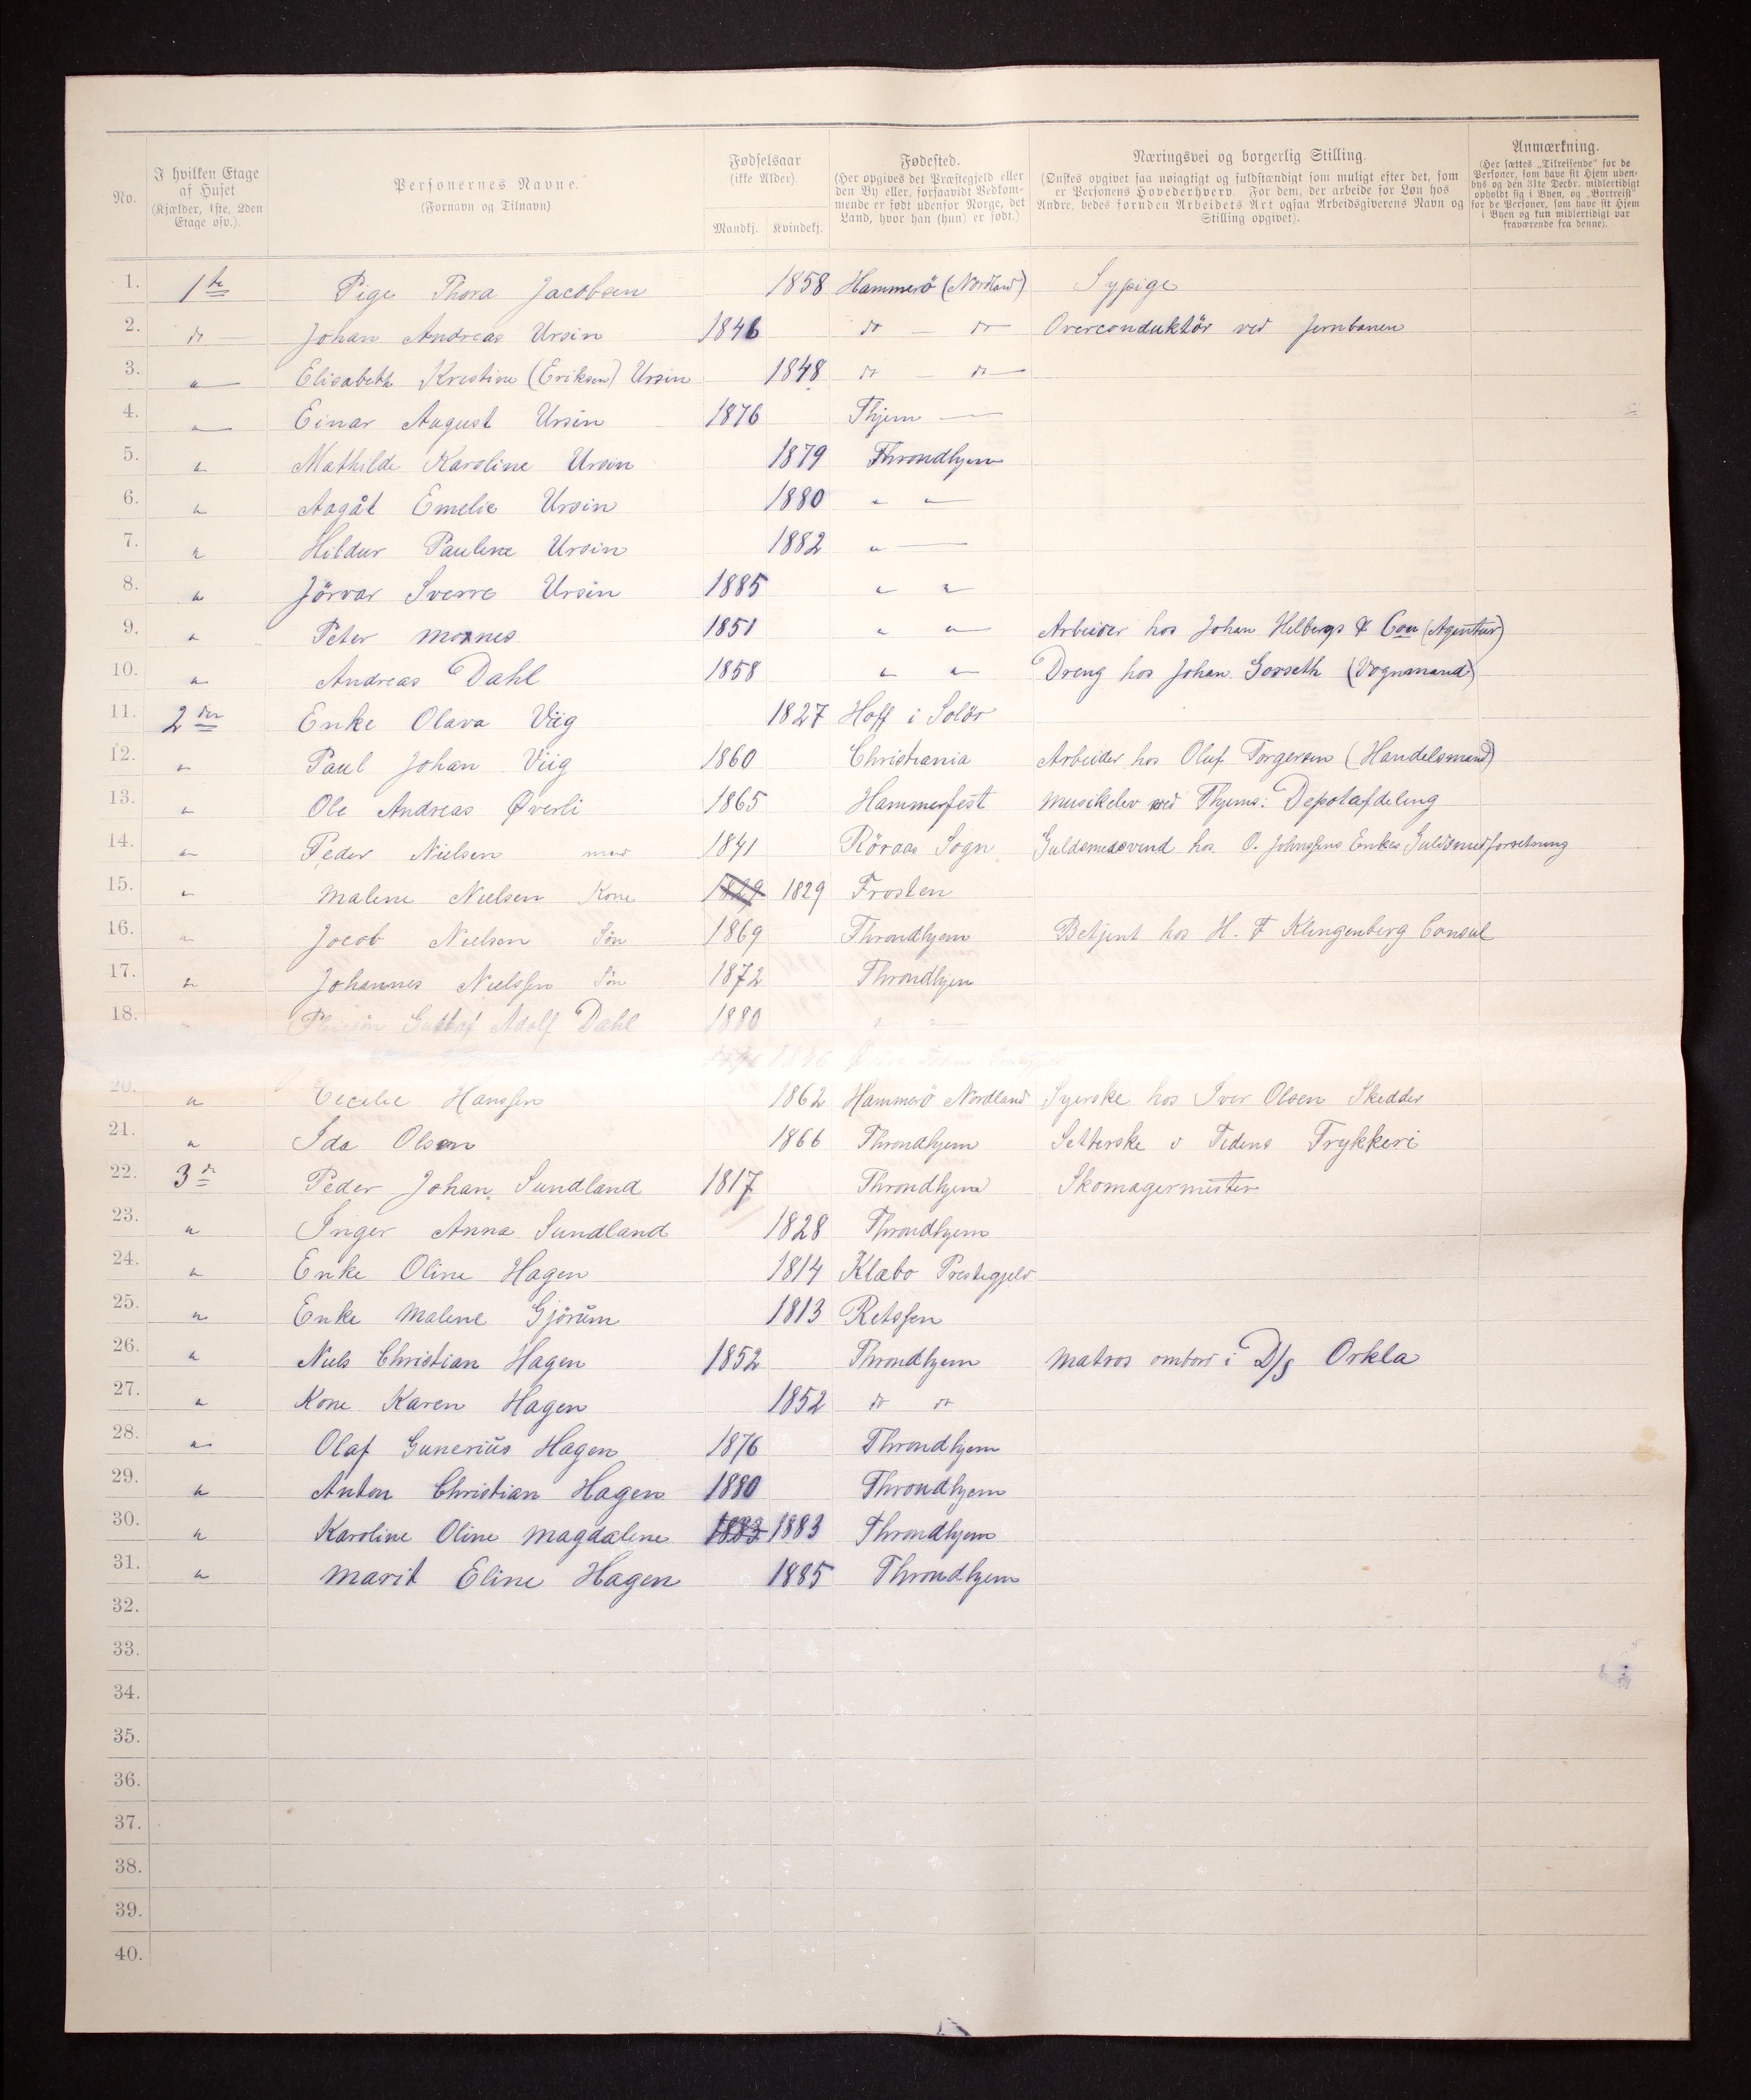 No.
I hvilken Etage af Huset (Kjælder, 1ste, 2den Etage osv.).
Personernes Navne. (Fornavn og Tilnavn).
Fødselsaar (ikke Alder).
Mandkj. Kvindekj.
Fødested. (Her opgives det Præstegjeld eller den By eller, forsaavidt Vedkommende er født udenfor Norge, det Land, hvor han (hun) er født.)
Næringsvei og borgerlig Stilling. (Ønskes opgivet saa nøiagtigt og fuldstændigt som muligt efter det, som er Personens Hovederhverv. For dem, der arbeide for Løn hos Andre, bedes foruden Arbeidets Art ogsaa Arbeidsgiverens Navn og Stilling opgivet).
Anmærkning. (Her sættes „Tilreisende" for de Personer, som have sit Hjem udenbys og den 31te Decbr. midlertidigt opholdt sig i Byen, og „Bortreist" for de Personer, som have sit Hjem i Byen og kun midlertidigt var fraværende fra denne).
1. 1te Pige Thora Jacobsen 1858 Hammerö (Nordland) Sypige
2. do — Johan Andreas Ursin 1846 do — do Overconduktör ved Jernbanen
3. " — Elisabeth Kristine (Eriksen) Ursin 1848 do — do —
4. " — Einar August Ursin 1876 Thjem —
5. " Mathilde Karoline Ursin 1879 Throndhjem
6. " Aagåt Emelie Ursin 1880 " "
7. " Hildur Pauline Ursin 1882 " —
8. " Jörvar Sverre Ursin 1885 " "
9. " Peter Moxnes 1851 " " Arbeider hos Johan Helbergs & Com (Agentur)
10. " Andreas Dahl 1858 " " Dreng hos Johan Gorseth (Vognmand)
11. 2den Enke Olava Viig 1827 Hoff i Solör
12. " Paul Johan Viig 1860 Christiania Arbeider hos Oluf Torgersen (Handelsmand)
13. " Ole Andreas Øverli 1865 Hammerfest Musikelev ved Thjems: Depotafdeling
14. " Peder Nielsen Mand 1841 Röraas Sogn Guldsmedsvend hos O. Johnssens Enkes Guldsmedforretning
15. " Malene Nielsen Kone 1829 1829 Frosten
16. " Jocob Nielsen Sön 1869 Throndhjem Betjent hos H. F Klingenberg Consul
17. " Johannes Nielssen Sön 1872 Throndhjem
18. Gustaf Adolf Dahl 1880 " "
1846
20. " Cecilie Hanssen 1862 Hammerö Nordland Syerske hos Iver Olsen Skedder
21. " Ida Olsen 1866 Throndhjem Setterske v Tidens Trykkeri
22. 3de Peder Johan Sundland 1817 Throndhjem Skomagermester
23. " Inger Anna Sundland 1828 Throndhjem
24. " Enke Oline Hagen 1814 Klæbo Prestegjeld
25. " Enke Malene Gjörum 1813 Retssen
26. " Niels Christian Hagen 1852 Throndhjem Matros ombord i D/S Orkla
27. " Kone Karen Hagen 1852 do do
28. " Olaf Gunerius Hagen 1876 Throndhjem
29. " Anton Christian Hagen 1880 Throndhjem
30. " Karoline Oline Magdalene 1883 1883 Throndhjem
31. " Marit Eline Hagen 1885 Throndhjem
32.
33.
34.
35.
36.
37.
38.
39.
40.